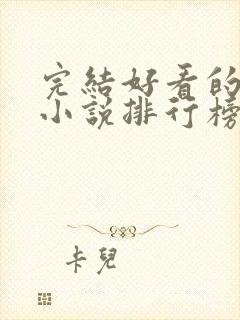 完結好看的
小說排行榜
卡兒